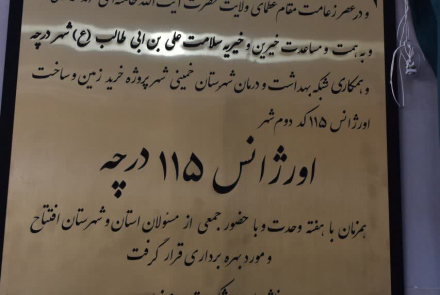 و در عصر زعامت مقام عظمای ولایت حضرت آیت الله خامنه ای
و به همت و مساعدت خیرین و خیریه سلامت علی بن ابی طالب (ع) شهر درچه
و همکاری شبکه بهداشت و درمان شهرستان خمینی شهر پروژه خرید زمین و ساخت
اورژانس ۱۱۵ کد دوم شهر
اورژانس ۱۱۵ درچه
همزمان با هفته وحدت و با حضور جمعی از مسئولان استان و شهرستان افتتاح
و مورد بهره برداری قرار گرفت